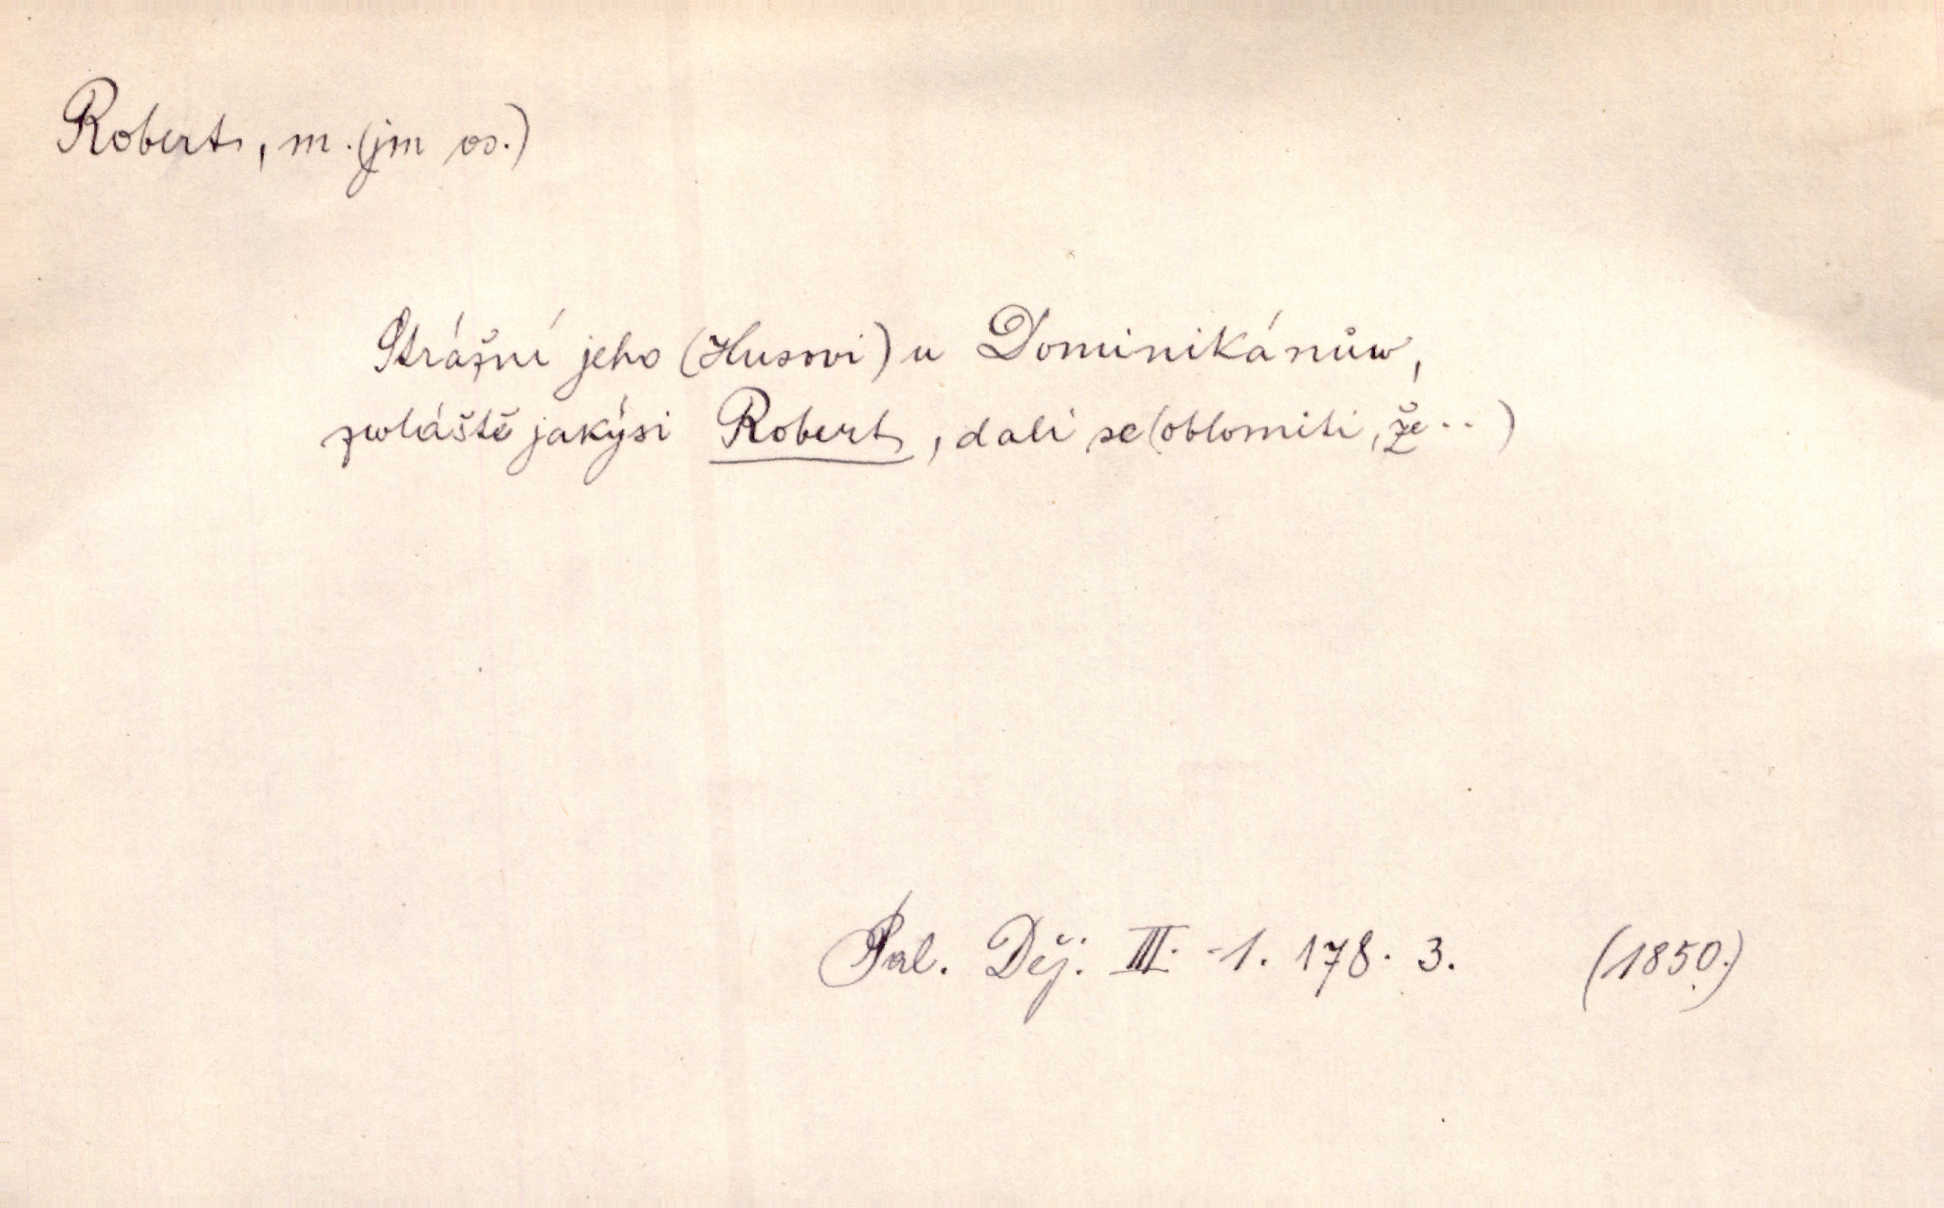 Robert, m. (jm os.)
Strážní jeho (Husovi) u Dominikánůw,
zwláště jakýsi Robert, dali se (oblomiti, že ..)
Pal. Děj. III. -1. 178. 3. (1850.)